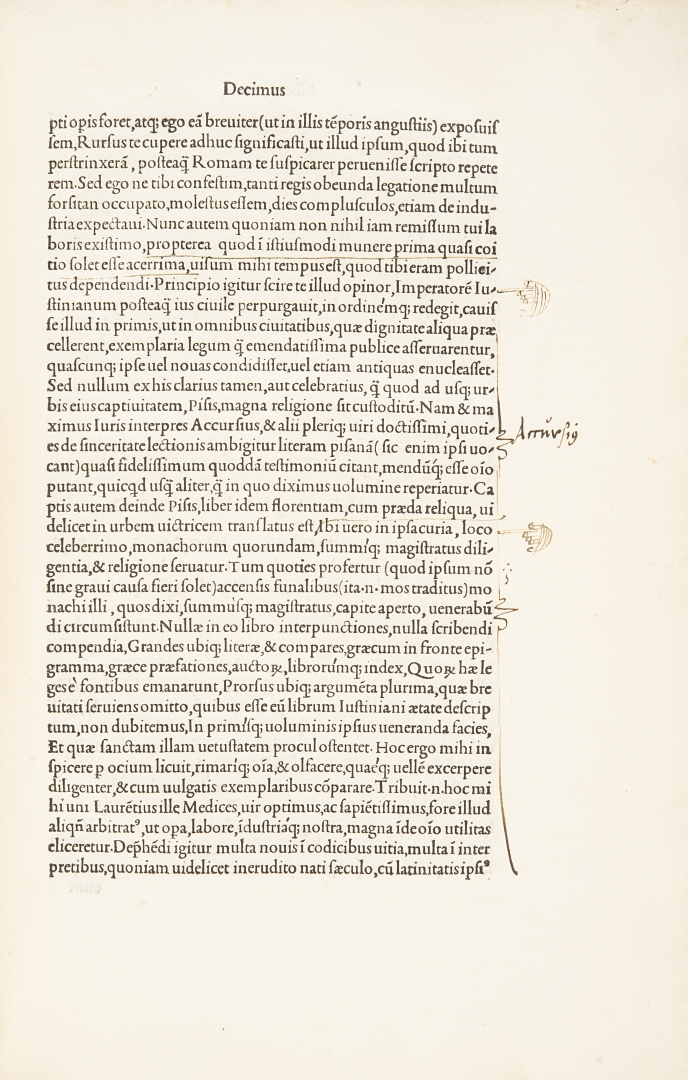 Decimus
pti opis foret,atq; ego eā breuiter(ut in illis tēporis angustiis) exposuis
sem,Rursus te cupere adhuc significasti,ut illud ipsum,quod ibi tum
perstrinxerā, posteaq̄ Romam te suspicarer peruenisse scripto repete
rem.Sed ego ne tibi confestim,tanti regis obeunda legatione multum
forsitan occupato,molestus essem,dies complusculos,etiam de indu-
stria expectaui.Nunc autem quoniam non nihil iam remissum tui la
boris existimo,propterea quod ī istiusmodi munere prima quasi coi
tio solet esse acerrima,uisum mihi tempus est,quod tibi eram pollici-
tus dependendi.Principio igitur scire te illud opinor,Imperatorē Iu-
stinianum posteaq̄ ius ciuile perpurgauit,in ordinémq; redegit,cauis
se illud in primis,ut in omnibus ciuitatibus,quæ dignitate aliqua præ
cellerent,exemplaria legum q̄ emendatissima publice asseruarentur,
quascunq; ipse uel nouas condidisset,uel etiam antiquas enucleasset.
Sed nullum ex his clarius tamen,aut celebratius, q̄ quod ad usq; ur-
bis eius captiuitatem,Pisis,magna religione sit custoditū.Nam & ma
ximus Iuris interpres Accursius,& alii pleriq; uiri doctissimi,quoti-
es de sinceritate lectionis ambigitur literam pisanā( sic enim ipsi uo-
cant)quasi fidelissimum quoddā testimoniū citant,mendūq; esse oīo
putant,quicqd usq̄ aliter,q̄ in quo diximus uolumine reperiatur.Ca
ptis autem deinde Pisis,liber idem florentiam,cum præda reliqua, ui
delicet in urbem uictricem translatus est,Ibi uero in ipsa curia, loco
celeberrimo,monachorum quorundam,summíq; magistratus dili-
gentia,& religione seruatur.Tum quoties profertur (quod ipsum nō
sine graui causa fieri solet)accensis funalibus(ita.n.mos traditus)mo
nachi illi, quos dixi,summúsq; magistratus,capite aperto, uenerabū
di circumsistunt.Nullæ in eo libro interpunctiones,nulla scribendi
compendia,Grandes ubiq; literæ,& compares,græcum in fronte epi-
gramma,græce præfationes,auctoꝝ,librorúmq; index,Quoꝝ hæ le
ges è fontibus emanarunt,Prorsus ubiq; argumēta plurima,quæ bre
uitati seruiens omitto,quibus esse eū librum Iustiniani ætate descrip
tum,non dubitemus,In primísq; uoluminis ipsius ueneranda facies,
Et quæ sanctam illam uetustatem procul ostentet. Hoc ergo mihi in
spicere ꝑ ocium licuit,rimaríq; oīa,& olfacere,quæq; uellē excerpere
diligenter,& cum uulgatis exemplaribus cōparare.Tribuit.n.hoc mi
hi uni Laurētius ille Medices,uir optimus,ac sapiētissimus,fore illud
aliqn̄ arbitratꝰ,ut opa,labore,īdustriáq; nostra,magna īde oīo utilitas
eliceretur.Dephēdi igitur multa nouis ī codicibus uitia,multa ī inter
pretibus,quoniam uidelicet inerudito nati sæculo,cū latinitatis ipsiꝰ
Accursiꝰ